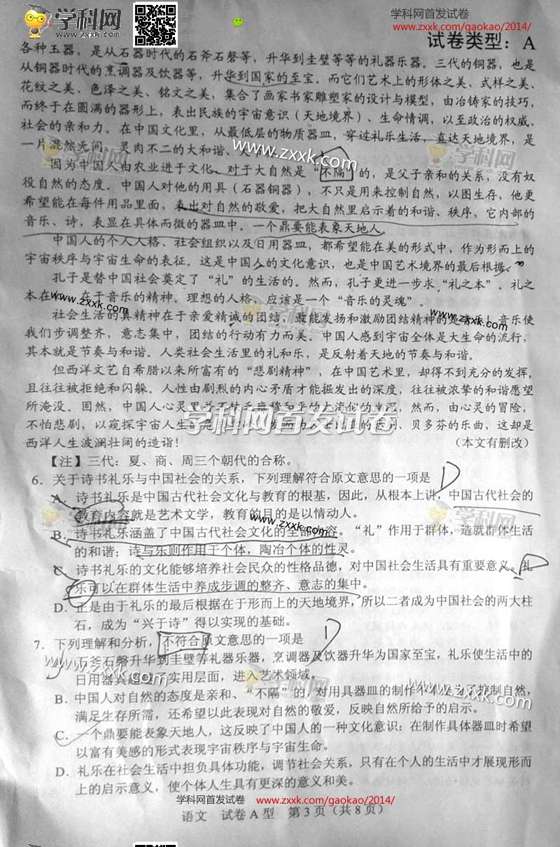 学科网
学科网首发试卷
www.zxxk.com/gaokao/2014/
试卷类型：A
各种玉器，是从石器时代的石斧石磬等，升华到圭璧等等的礼器乐器。三代的铜器，也是
从铜器时代的烹调器及饮器等，升华到国家的至宝。而它们艺术上的形体之美、式样之美、
花纹之美、色泽之美、铭文之美，集合了画家书家雕塑家的设计与模型，由冶铸家的技巧，
而终于在圆满的器形上，表出民族的宇宙意识（天地境界）、生命情调，以至政治的权威，
社会的亲和力。在中国文化里，从最低层的物质器皿，穿过礼乐生活，直达天地境界，是
一片混然无间，灵肉不二的大和谐。
因为中国人由农业进于文化，对于大自然是“不隔”的，是父子亲和的关系，没有奴
役自然的态度。中国人对他的用具（石器铜器），不只是用来控制自然，以图生存，他更
希望能在每件用品里面，表出对自然的敬爱，把大自然里启示着的和谐、秩序，它内部的
音乐、诗，表显在具体而微的器皿中。一个鼎要能表象天地人。
中国人的个人人格、社会组织以及日用器皿，都希望能在美的形式中，作为形而上的
宇宙秩序与宇宙生命的表征。这是中国人的文化意识，也是中国艺术境界的最后根据。
孔子是替中国社会奠定了“礼”的生活的。然而，孔子更进一步求“礼之本”。礼之
本在 于音乐的精神。理想的人格，应该是一个“音乐的灵魂”。
社会生活的真精神在于亲爱精诚的团结，最能发扬和激励团结精神的是音乐！音乐使
我们步调整齐，意志集中，团结的行动有力而美。中国人感到宇宙全体是大生命的流行，
其本就是节奏与和谐。人类社会生活里的礼和乐，是反射着天地的节奏与和谐。
但西洋文艺自希腊以来所富有的“悲剧精神”，在中国艺术里，却得不到充分的发挥，
且往往被拒绝和闪躲。人性由剧烈的内心矛盾才能掘发出的深度，往往被浓挚的和谐愿望
所淹没。固然，中国人心灵里 然而，由心灵的冒险，
不怕悲剧，以窥探宇宙人生 贝多芬的乐曲，这却是
西洋人生波澜壮阔的造诣！
（本文有删改）
【注】三代：夏、商、周三个朝代的合称。
6．关于诗书礼乐与中国社会的关系，下列理解符合原文意思的一项是
D
A．诗书礼乐是中国古代社会文化与教育的根基，因此，从根本上讲，中国古代社会的
教育内容就是艺术文学，教育的目的是以情动人。
B．诗书礼乐涵盖了中国古代社会文化的全部内容。“礼”作用于群体，造就群体生活
的和谐；诗与乐则作用于个体，陶冶个体的性灵。
C．诗书礼乐的文化能够培养社会民众的性格品德，对中国社会生活具有重要意义。礼
乐可以在群体生活中养成步调的整齐、意志的集中。
D．正是由于礼乐的最后根据在于形而上的天地境界，所以二者成为中国社会的两大柱
石，成为“兴于诗”得以实现的基础。
7．下列理解和分析，不符合原文意思的一项是
D
A．石斧石磬升华到圭璧等礼器乐器，烹调器及饮器升华为国家至宝，礼乐使生活中的
日用器具 实用层面，进入艺术领域。
B．中国人对自然的态度是亲和、“不隔”的，对用具器皿的制作 控制自然，
满足生存所需，还希望以此表现对自然的敬爱，反映自然所给予的启示。
C．一个鼎要能表象天地人，这反映了中国人的一种文化意识：在制作具体器皿时希望
以富有美感的形式表现宇宙秩序与宇宙生命。
D．礼乐在社会生活中担负具体功能，调节社会关系，只有在个人的生活中才展现形而
上的启示意义，使个体人生具有更深的意义和美。
学科网首发试卷
www.zxxk.com/gaokao/2014/
语文 试卷A型 第3页（共8页）